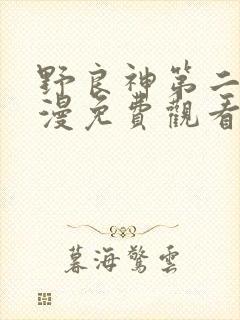 野良神第二
漫免費觀看
暮海驚雲